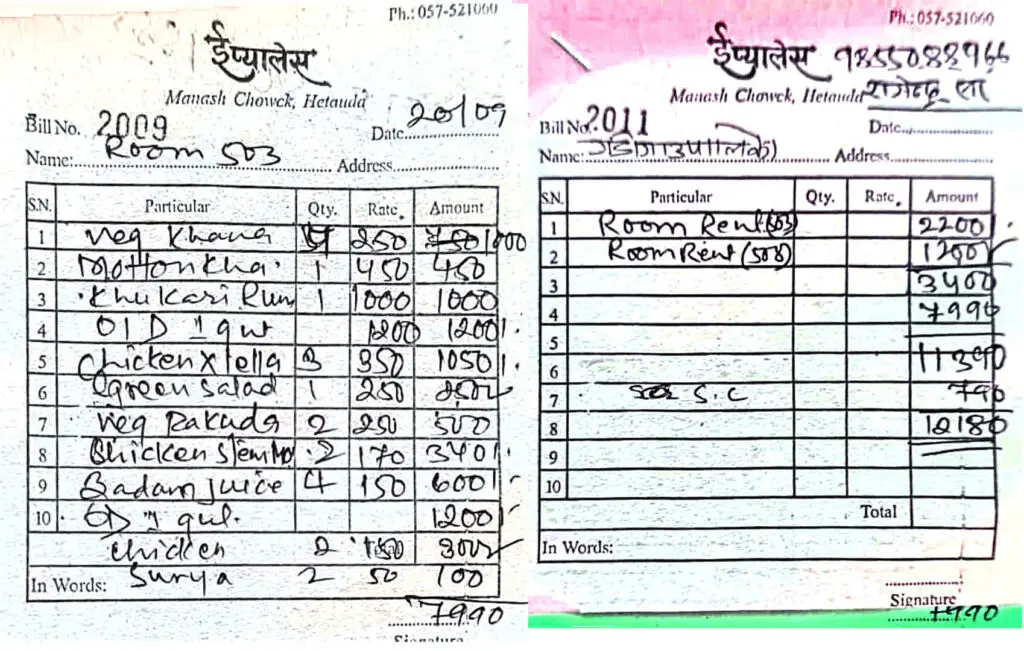 Ph.: 057-521060
ईप्यालेस
Manash Chowck, Hetauda
20/09
Bill No. 2009
Date
Name: Room 503
Address
S.N. Particular Qty. Rate. Amount
1 Veg Khana 4 250 1000
2 Motton Kha. 1 450 450
3 Khukari Rum 1 1000 1000
4 O1D " qut 1200 1200
5 Chicken X lella 3 350 1050
6 green salad 1 250 250
7 Veg Pakuda 2 250 500
8 Chicken 2 170 340
9 Badam juice 4 150 600
10 OD " qut. 1200
chicken 2 150 300
In Words: Surya 2 50 100
7990
Signature
Ph.: 057-521060
ईप्यालेस
Manash Chowck, Hetauda
Bill No. 2011
Date
Name:
Address
S.N. Particular Qty. Rate. Amount
1 Room Rent (503) 2200
2 Room Rent (508) 1200
3 3400
4 7990
5
6 11390
7 S.C 790
8 12180
9
10
Total
In Words:
Signature
7990